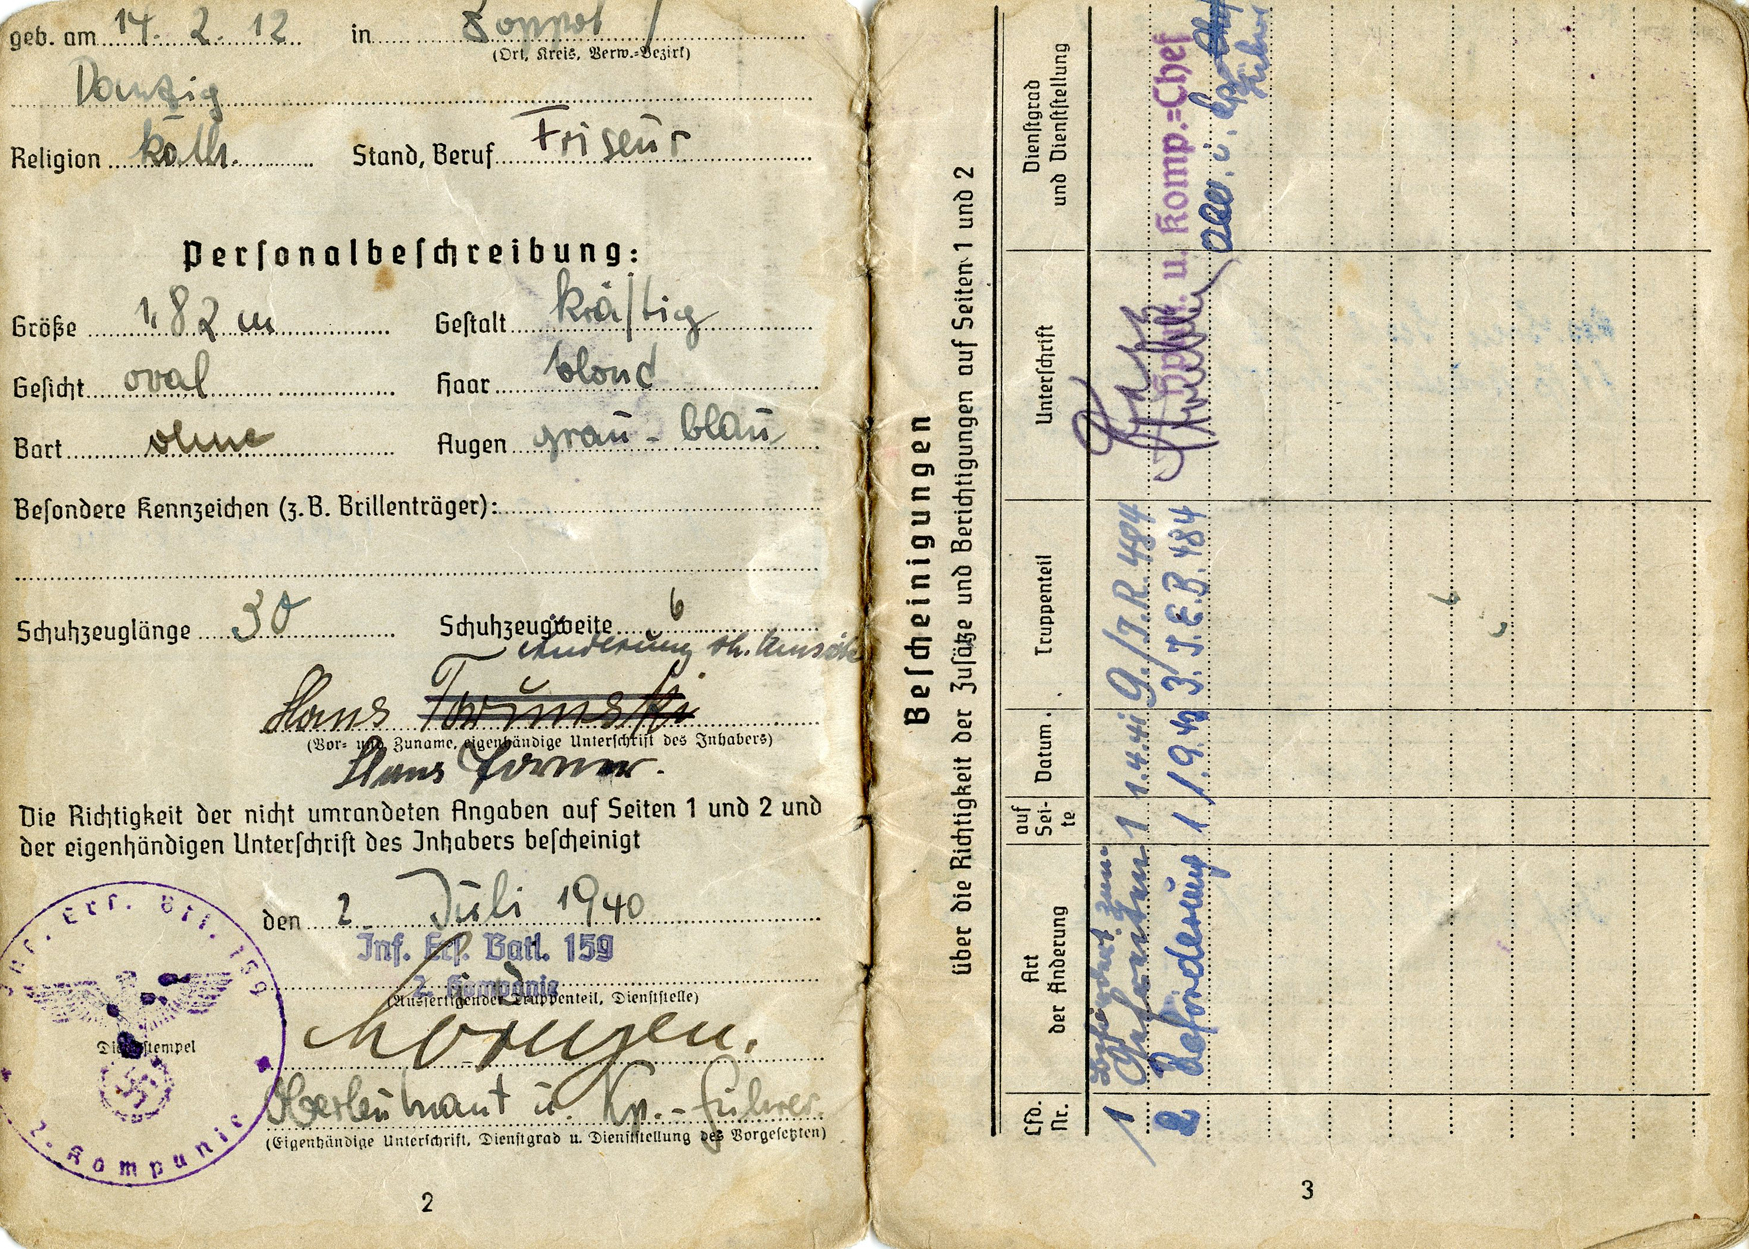 geb. am 14. 2. 12 in Zoppot /
(Ort, Kreis, Verw.=Bezirk)
Danzig
Religion kath. Stand, Beruf Friseur
Personalbeschreibung:
Größe 1,82 m Gestalt kräftig
Gesicht oval Haar blond
Bart ohne Augen grau - blau
Besondere Kennzeichen (z. B. Brillenträger):
Schuhzeuglänge 30 Schuhzeugweite 6
Änderung
Hans
(Vor= und Zuname, eigenhändige Unterschrift des Inhabers)
Hans
Die Richtigkeit der nicht umrandeten Angaben auf Seiten 1 und 2 und
der eigenhändigen Unterschrift des Inhabers bescheinigt
den 2. Juli 1940
Inf. Ers. Batl. 159
2. Kompanie
(Ausfertigender Truppenteil, Dienststelle)
Oberleutnant u. Kp.-Führer.
(Eigenhändige Unterschrift, Dienstgrad u. Dienststellung des Vorgesetzten)
Inf. Ers. Btl. 159
Dienststempel
2. Kompanie
2
Bescheinigungen
über die Richtigkeit der Zusätze und Berichtigungen auf Seiten 1 und 2
Lfd. Nr. Art der Änderung auf Sei- te Datum. Truppenteil Unterschrift Dienstgrad und Dienststellung
1 zum Gefreiten 1 1.4.41 9./I.R. 484 Hptm. u. Komp.=Chef
2 Beförderung 1 1.9.43 3. I.E.B. 484
3